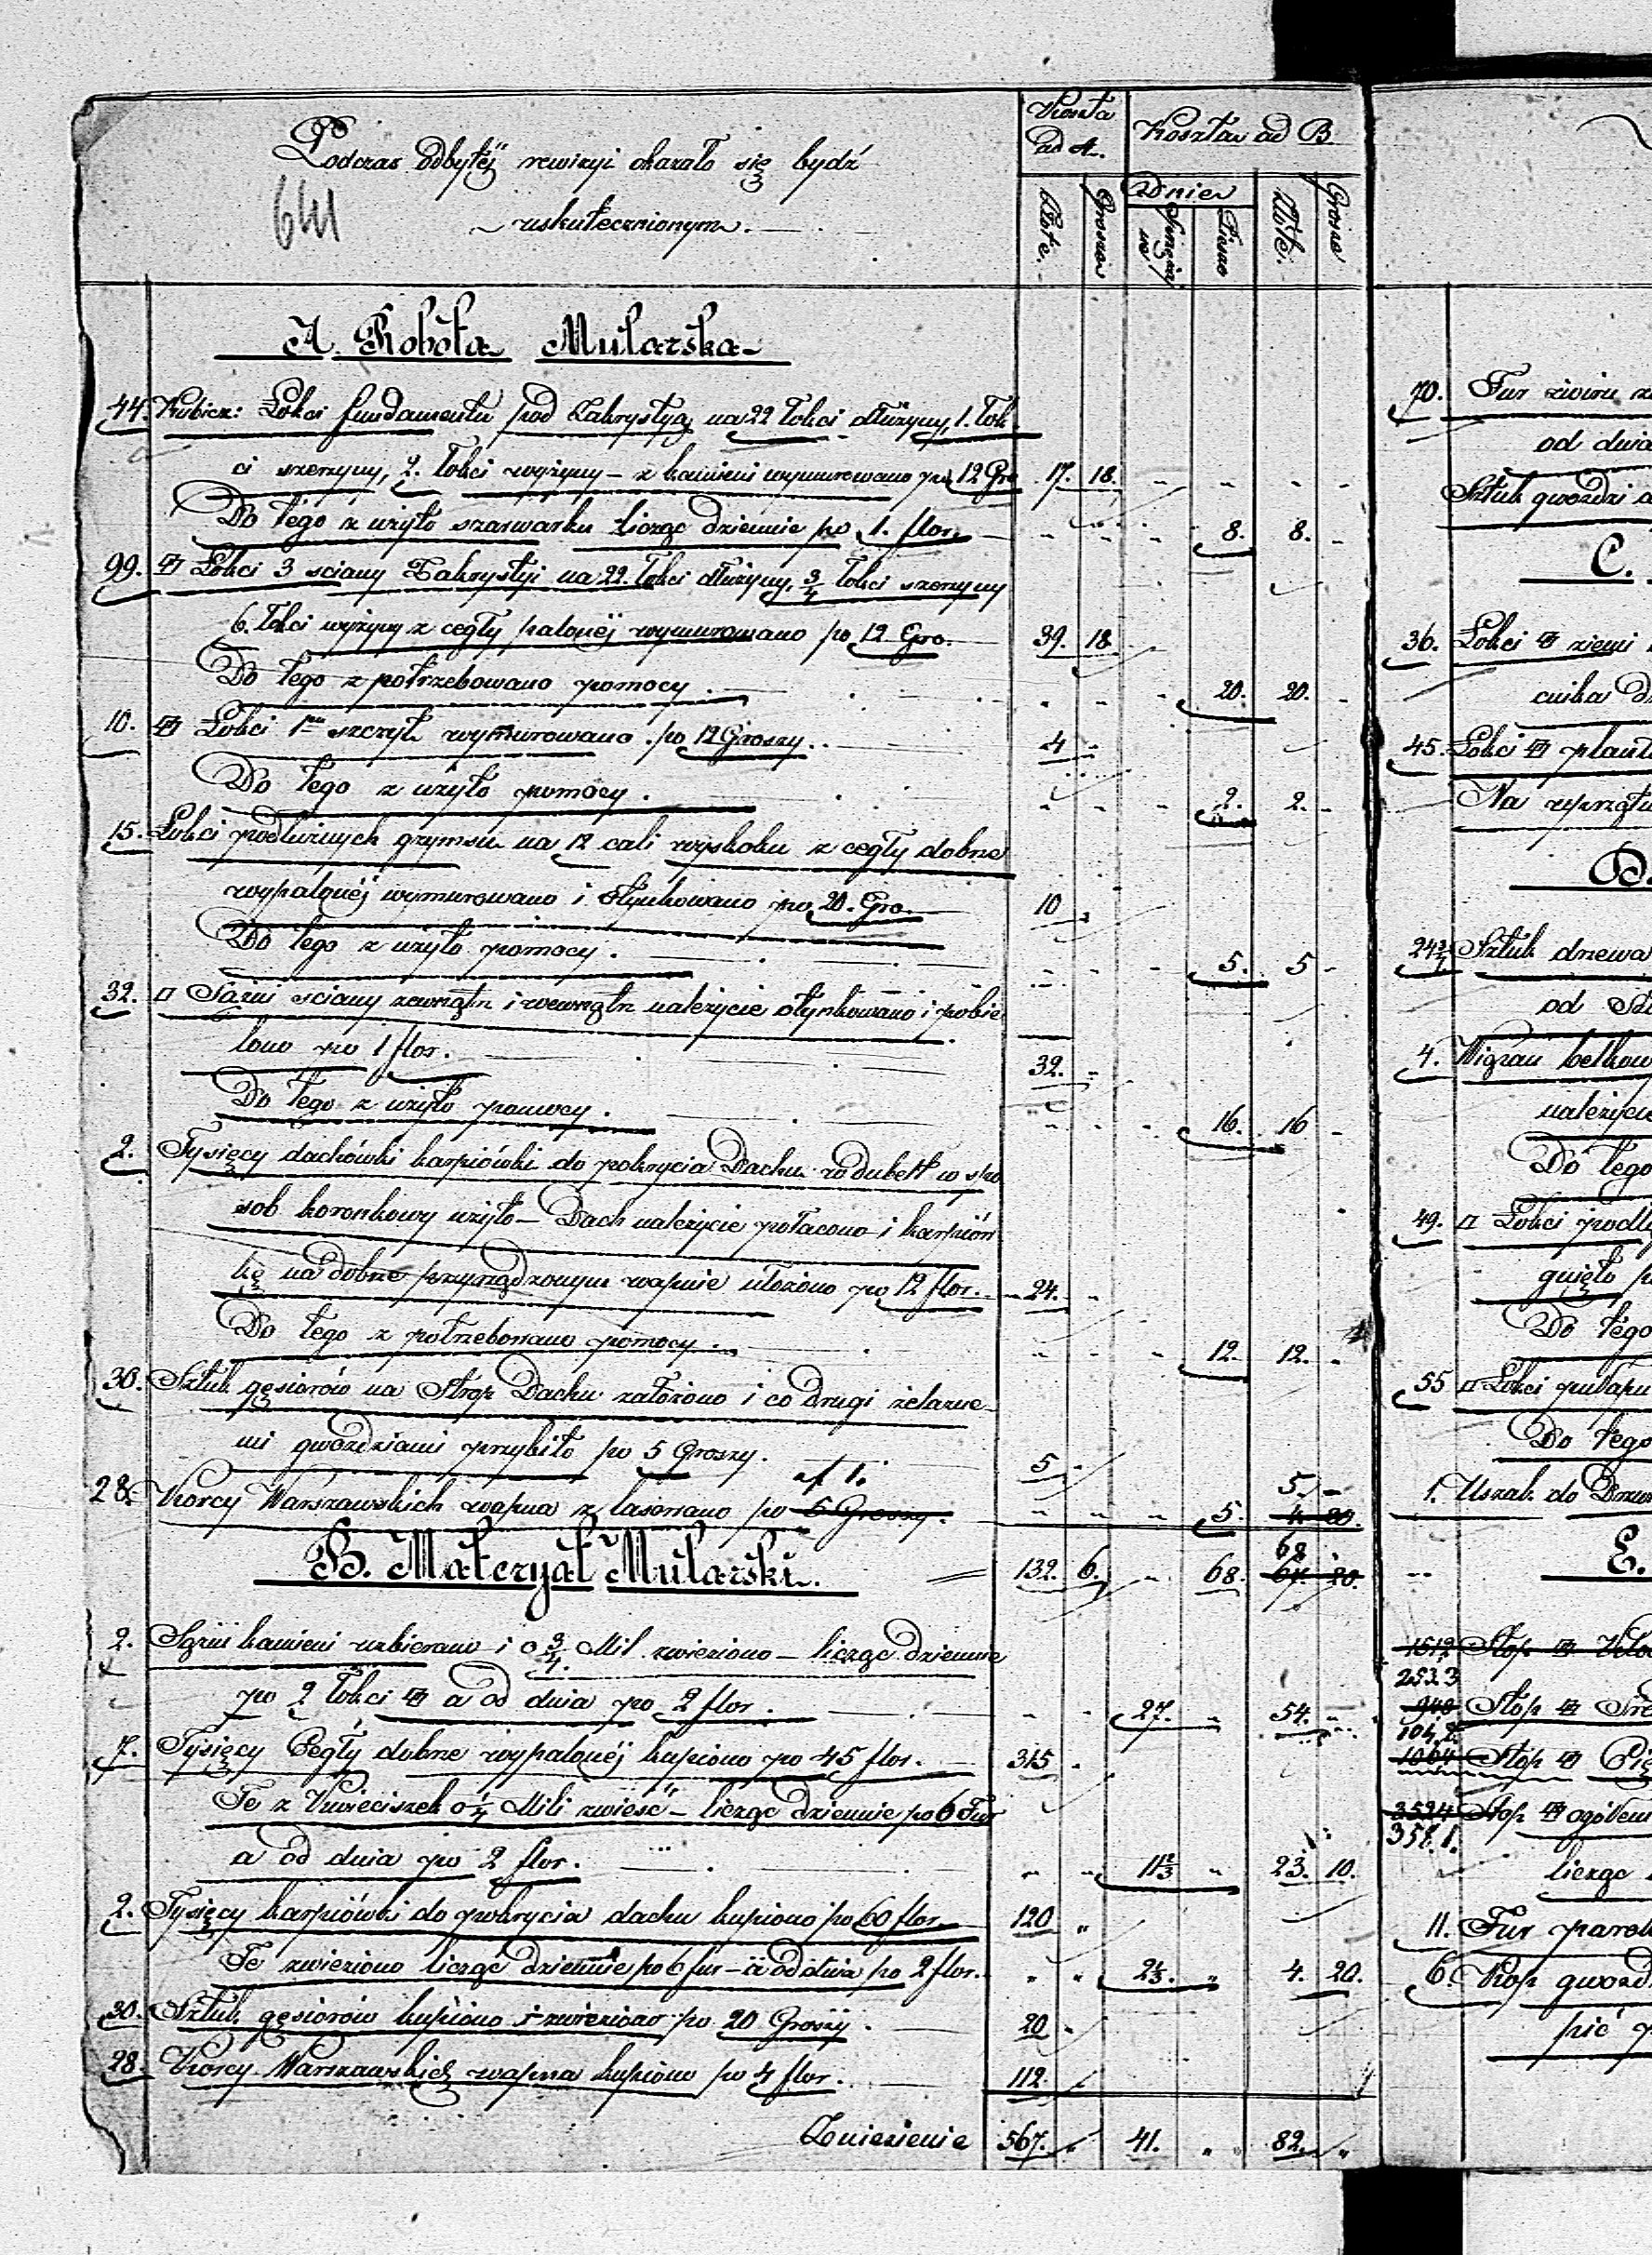 Podczas odbytéj rewizyi okazało się bydź
uskutecznionym.
641
Koszta ad A.
Koszta ad B
Dnie
Złote.
Grosze
Sprzężajne
Piesze
Złote.
Grosze
A. Robota Mularska
44. Kubicz: Łokci fundamentu pod Zakrystyą na 22 łokci dłużyny, 1. łok
ci szerzyny, 2. łokci wyżyny – z kamieni wymurowano po 12 Gro 17. 18. - - - -
Do tego z użyto szarwarku licząc dziennie po 1. flor. - - - 8. 8. -
99. Łokci 3 sciany Zakrystyi na 22. łokci dłużyny, 3/4 łokci szerzyny
6. łokci wyżyny z cegły palonéj wymurowano po 12 Gro. 39. 18.
Do tego z potrzebowano pomocy. - - - 20. 20. -
10. Łokci szczyt wymurowano po 12 Groszy. 4 -
Do tego z użyto pomocy. - - - 2. 2. -
15. Łokci podłużnych gzymsu na 12 cali wyskoku z cegły dobrze
wypalonéj wymurowano i otynkowano po 20. Gro. 10 -
Do tego z użyto pomocy. - - - 5. 5 -
32. Sążni sciany zewnątrz i wewnątrz należycie otynkowano i pobie
lono po 1 flor. 32. -
Do tego z użyto pomocy. - - - 16. 16 -
2. Tysięcy dachówki karpiówki do pokrycia Dachu w dubelt w spo
sob koronkowy użyto – Dach należycie połacono i karpiów
kę na dobrze przyrządzonym wapnie ułożono po 12 flor. 24. -
Do tego z potrzebowano pomocy. - - - 12. 12. -
30. Sztuk gęsiorów na Strop Dachu założono i co drugi żelazne
mi gwoździami przybito po 5 Groszy. 5 -
f 1. 5. -
28. Korcy Warszawskich wapna z lasowano po 5 Groszy. - - - 5. 4 20.
68
B. Materyał Mularski. 132. 6. - 68. 67. 20.
2. Sążni kamieni uzbierano i o 3/4 Mil zwieziono – licząc dziennie
po 2 łokci a od dnia po 2 flor. - - 27. - 54. -
7. Tysięcy Cegły dobrze wypalonéj kupiono po 45 flor. 315 -
Te z Kwieciszek o 1/4 Mili zwieść – licząc dziennie po 6 Fur
a od dnia po 2 flor. - - 11 2/3 " 23. 10.
2. Tysięcy karpiówki do pokrycia dachu kupiono po 60 flor. 120 "
Te zwieziono licząc dziennie po 6 fur – a od dnia po 2 flor. " " 2 1/3. " 4. 20.
30. Sztuk gęsiorów kupiono i zwieziono po 20 Groszy. 20 -
28. Korcy Warszawskich wapna kupiono po 4 flor. 112 -
Zniesienie 567. " 41. " 82. "
70. Fur
od dnia
Sztuk gwoździ
C.
36. Łokci ziemi
45. Łokci
Na
D.
24 3/4 Sztuk drzewa
od
4. Wigzan belkow
należycie
Do tego
49. Łokci podł
Do tego
55 Łokci
Do tego
1. Uszak do Drzw
E.
1512 Stop
253.3
948 Stop
104.2
1064 Stop
3524 Stop
358.1.
licząc
11. Fur
6. Kop gwoźd